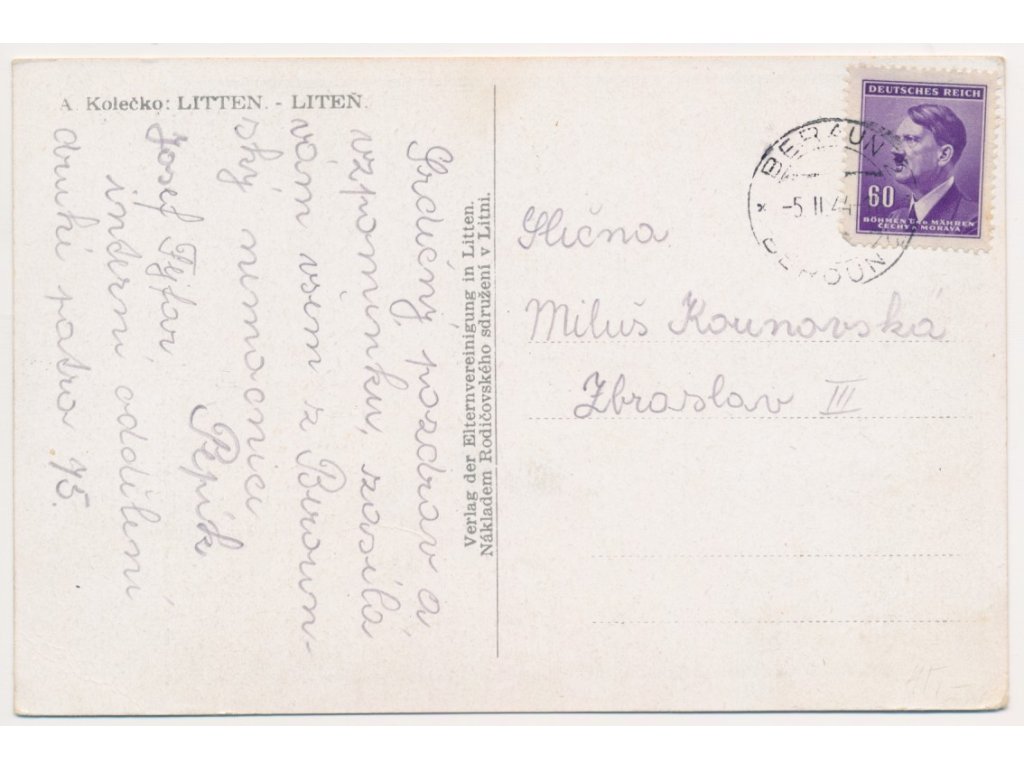 A. Kolečko: LITTEN. - LITEŇ.
Srdečný pozdrav a
vzpomínku, zasílá
vám všem z Beroun-
ský nemocnice
Pepík
Josef
interní oddělení
druhé patro 45.
Verlag der Elternvereinigung in Litten.
Nákladem Rodičovského sdružení v Litni.
DEUTSCHES REICH
60
BÖHMEN UND MÄHREN
ČECHY A MORAVA
BERAUN
-5 II 44-
BEROUN
Slečna
Miluš Kounovská
Zbraslav III